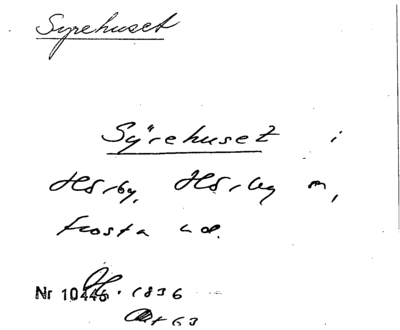 Syrehuset
Syrehuset i
Hörby, Hörby sn,
Frosta hd.
Nr 10446. 1836
Akt 63